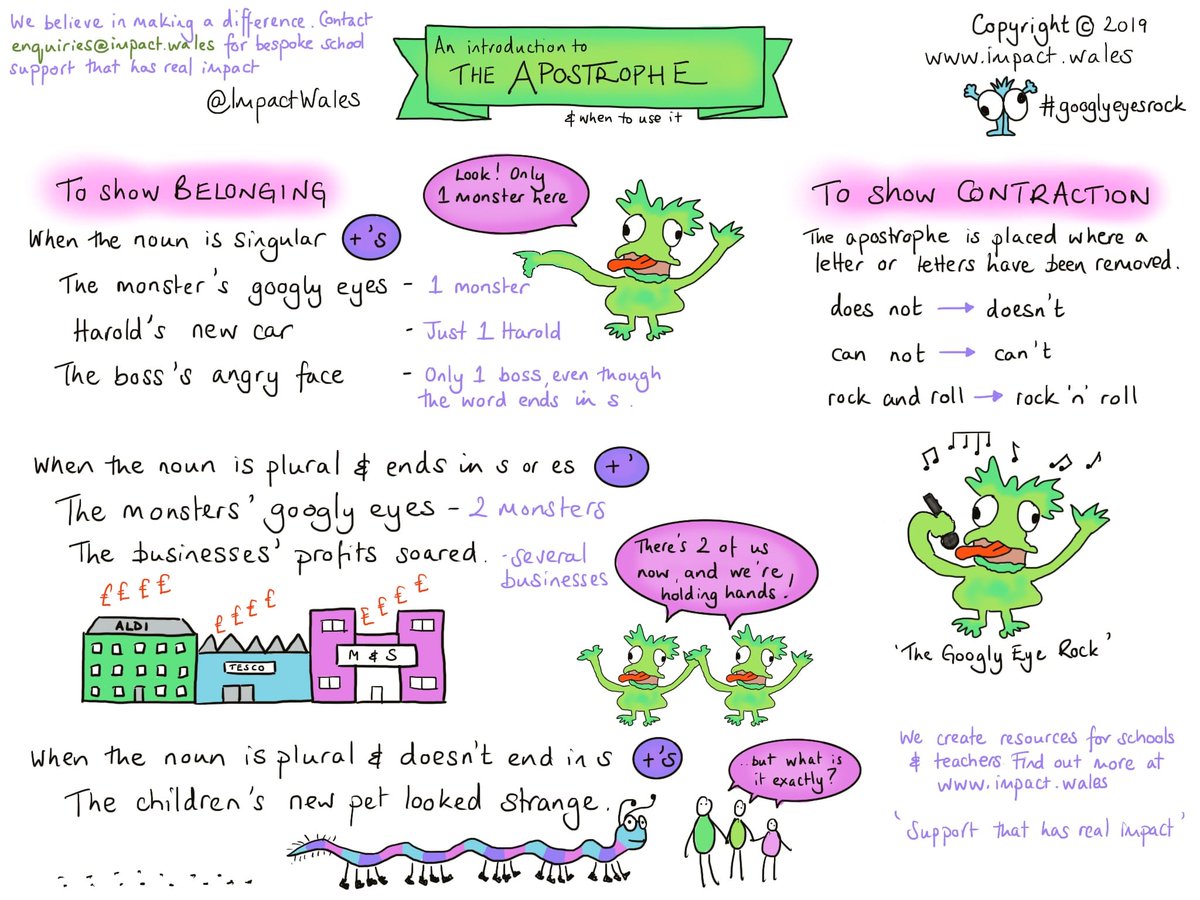 We believe in making a difference. Contact
enquiries@impact.wales for bespoke school
support that has real impact
@ImpactWales
An introduction to
THE APOSTROPHE
& when to use it
Copyright © 2019
www.impact.wales
#googlyeyesrock
To show BELONGING
When the noun is singular +'s
The monster's googly eyes - 1 monster
Harold's new car - Just 1 Harold
The boss's angry face - Only 1 boss, even though
the word ends in s.
Look! Only
1 monster here
When the noun is plural & ends in s or es +'
The monsters' googly eyes - 2 monsters
The businesses' profits soared. - several
businesses
££££
££££
££££
ALDI
TESCO
M & S
There's 2 of us
now, and we're
holding hands!
When the noun is plural & doesn't end in s +'s
The children's new pet looked strange.
..but what is
it exactly?
To show CONTRACTION
The apostrophe is placed where a
letter or letters have been removed.
does not → doesn't
can not → can't
rock and roll → rock 'n' roll
'The Googly Eye Rock'
We create resources for schools
& teachers Find out more at
www.impact.wales
'Support that has real impact'